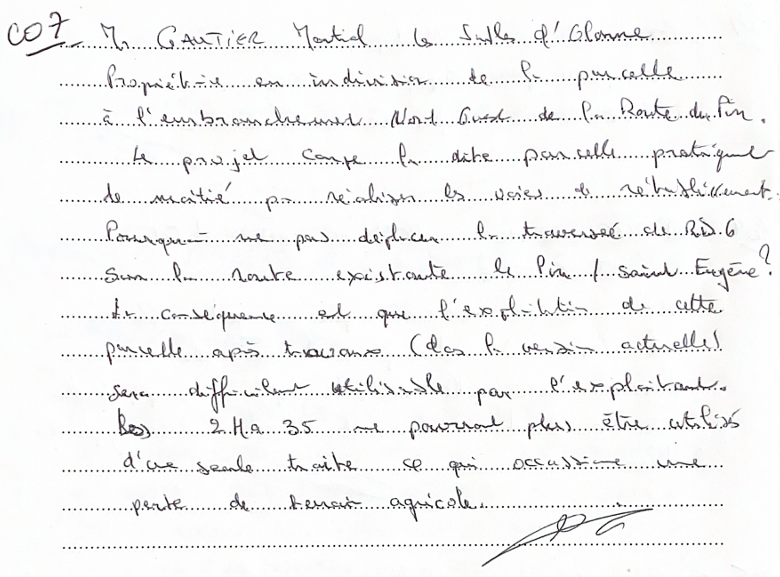 CO7 Mr GAUTIER Martial Les Salles d'Olonne
Propriétaire en indivision de la parcelle
à l'embranchement Nord Ouest de la Route du Pin.
Le projet coupe la dite parcelle pratiquement
de moitié pr réaliser les voies de rétablissement.
Pourquoi ne pas déplacer la traversée de RD.6
sur la route existante le Pin / Saint Eugène?
La conséquence est que l'exploitation de cette
parcelle après travaux (dans la version actuelle)
sera difficilement utilisable par l'exploitant.
Les 2 Ha 35 ne pourront plus être utilisés
d'une seule traite ce qui occassione une
perte de terrain agricole.